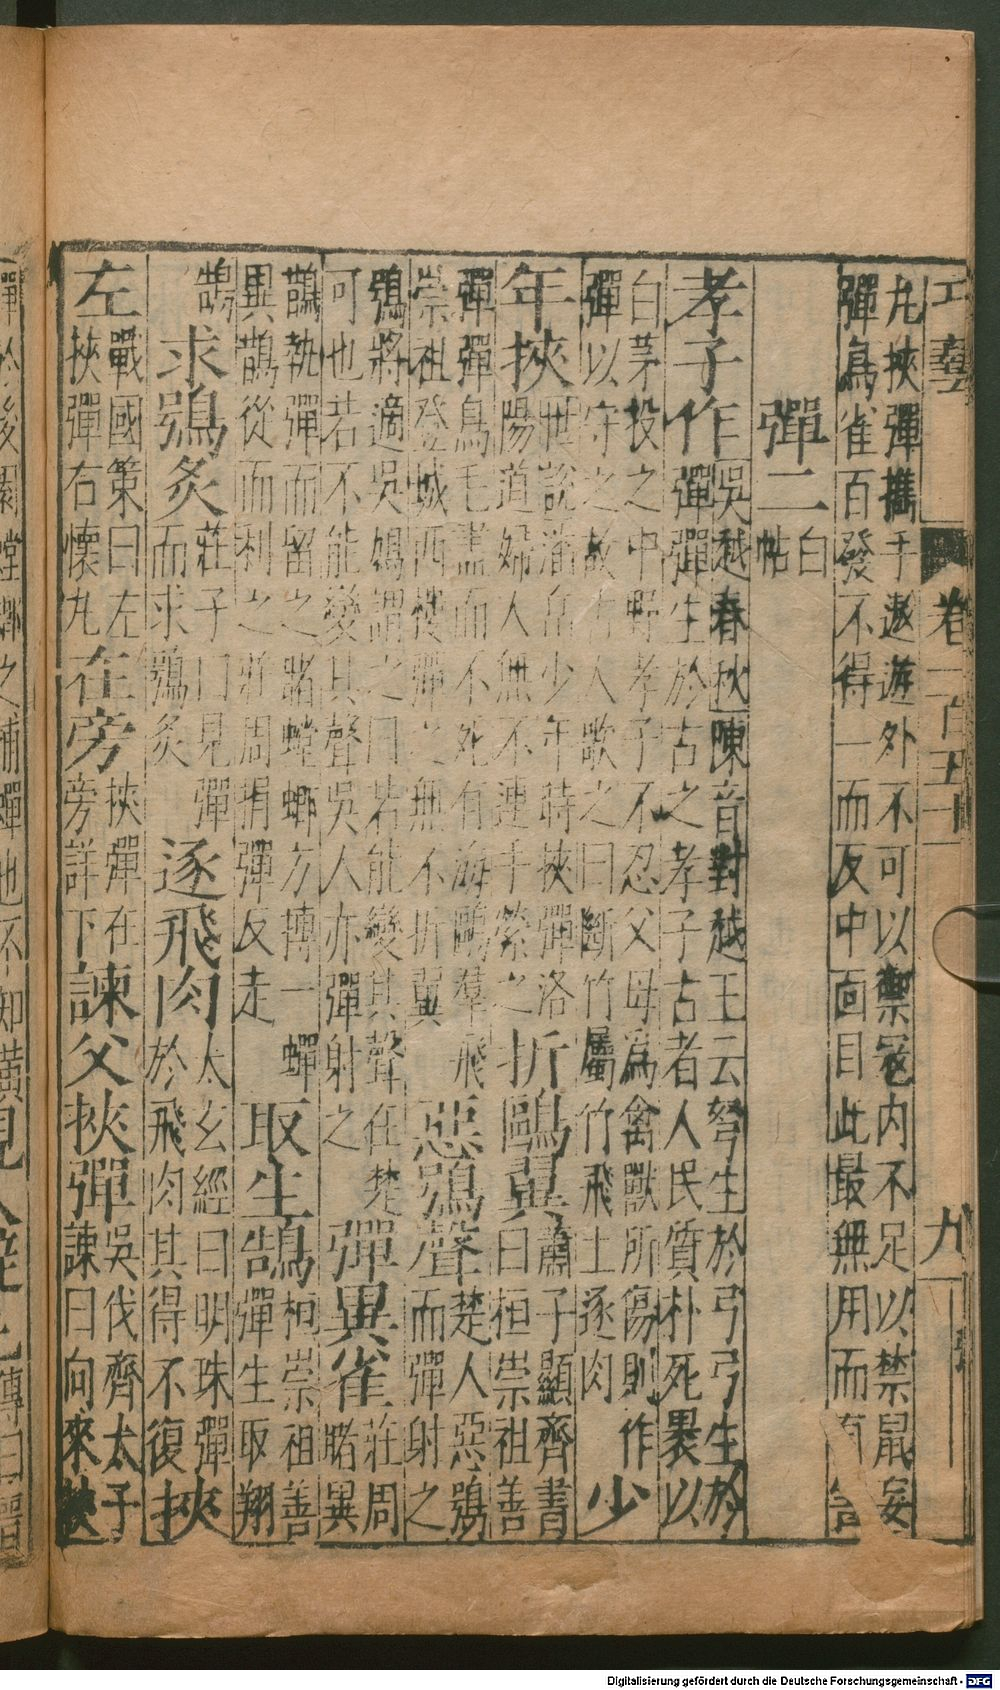 巧藝 卷一百五十 九
丸挾彈攜手遨遊外不可以禦寇内不足以禁鼠妄
彈鳥雀百發不得一而反中面目此最無用而有
彈二 白帖
孝子作 吳越春秋陳音對越王云弩生於弓弓生於
彈彈生於古之孝子古者人民質朴死裹以
白茅投之中野孝子不忍父母為禽獸所傷則作
彈以守之故古人歌之曰斷竹屬竹飛土逐肉 少
年挾 世說潘岳少年時挾彈洛
陽道婦人無不連手縈之 折鷗翼 蕭子顯齊書
曰桓崇祖善
彈彈鳥毛盡而不死有海鷗羣飛
崇祖登城西樓彈之無不折翼 惡鴞聲 楚人惡鴞
而彈射之
鴞將適吳鳩謂之曰若能變其聲任楚
可也若不能變其聲吳人亦彈射之 彈異雀 莊周
睹異
鵲執彈而留之睹螳螂方摶一蟬
異鵲從而利之莊周捐彈反走 取生鵠 桓崇祖善
彈生取翔
鵠 求鴞炙 莊子曰見彈
而求鴞炙 逐飛肉 太玄經曰明珠彈
於飛肉其得不復 挾
左 戰國策曰左
挾彈右懷丸 在旁 挾彈在
旁詳下 諫父挾彈 吳伐齊太子
諫曰向來挾
彈於後園螳螂之捕蟬也不知
Digitalisierung gefördert durch die Deutsche Forschungsgemeinschaft - DFG